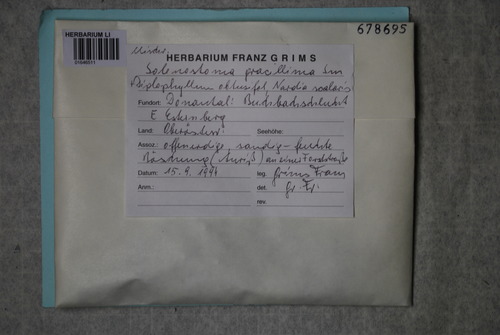 HERBARIUM LI
678695
HERBARIUM FRANZ GRIMS
Solenostoma gracillima Sm
+ Diplophyllum obtusifol, Nardia scalaris
Fundort: Donautal:
E Eschenberg
Land: Oberöster Seehöhe:
Assoz: offenerdige, sandig-feuchte
Böschung an einer Forststraße
Datum: 15.9.1994 leg. Grims Franz
Anm.: det. Gr. Fr.
rev.